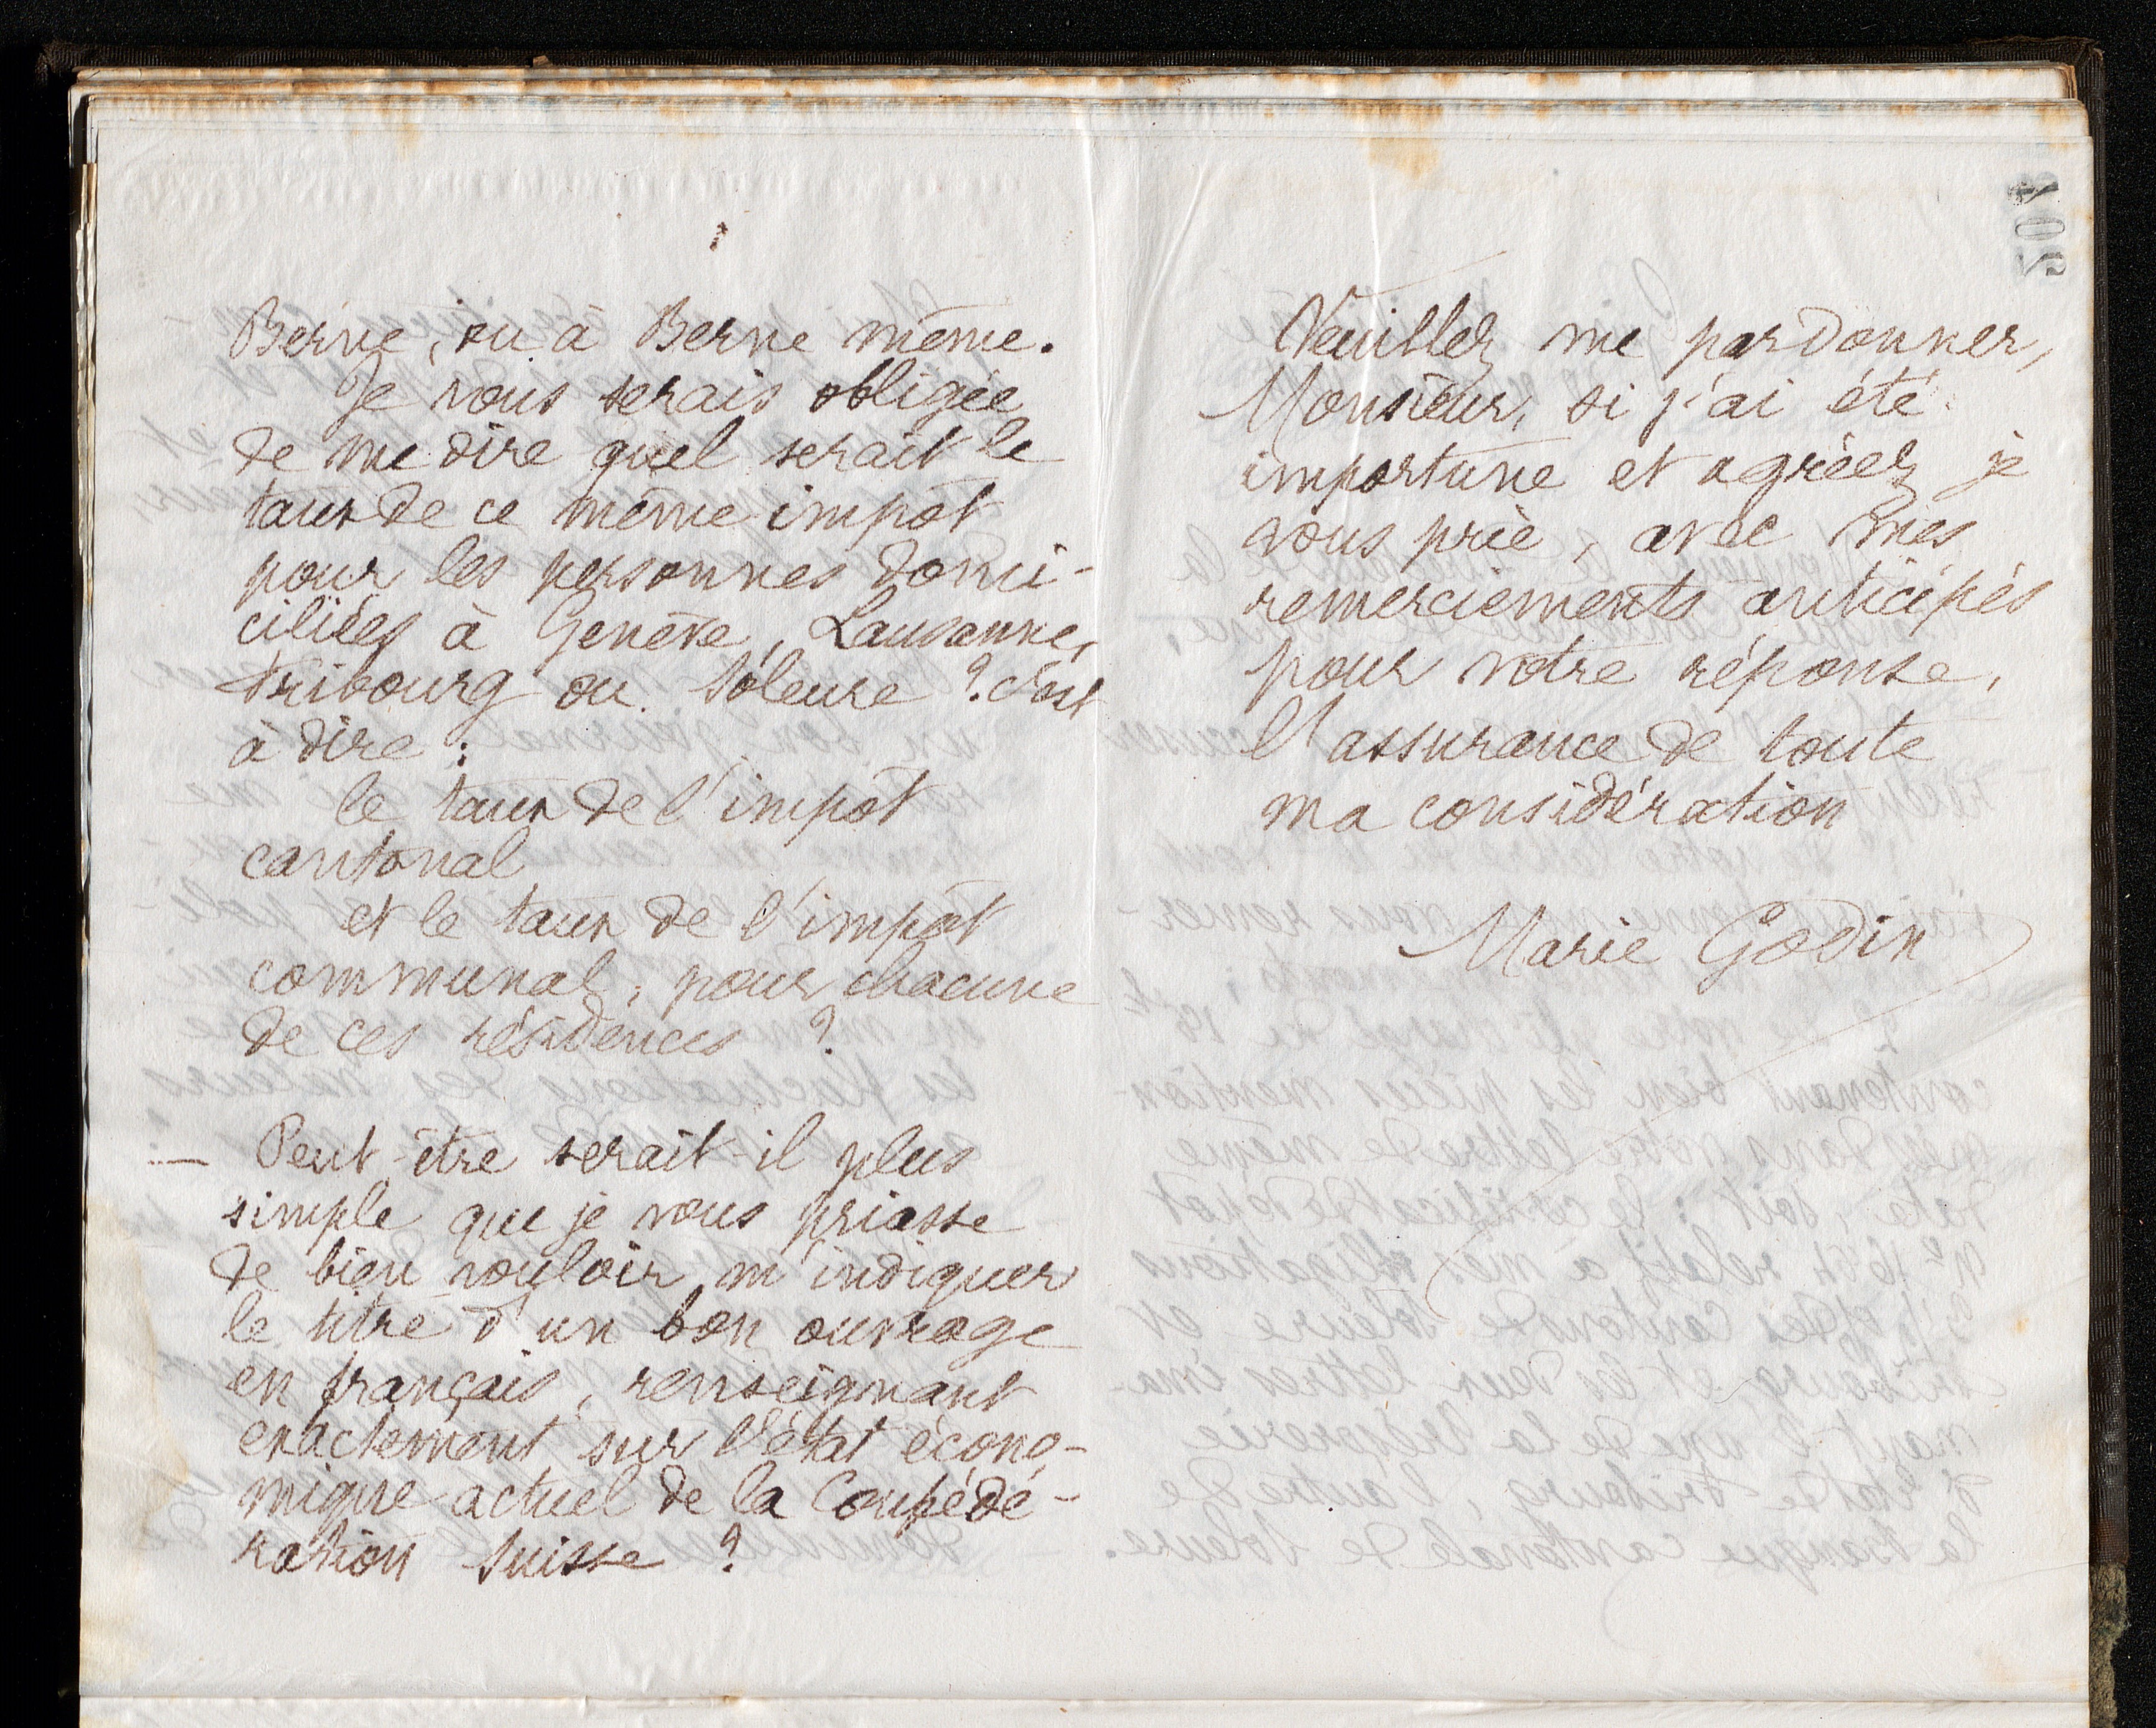 Berne, ou à Berne même.
Je vous serais obligée
de me dire quel serait le
taux de ce même impôt
pour les personnes domi-
ciliées à Genève, Lausanne,
Fribourg ou Soleure ? c'est
à dire :
le taux de l'impôt
cantonal
et le taux de l'impôt
communal, pour chacune
de ces résidences ?
— Peut-être serait-il plus
simple que je vous priasse
de bien vouloir m'indiquer
le titre d'un bon ouvrage
en français, renseignant
exactement sur l'état écono-
mique actuel de la Confédé-
ration Suisse ?
Veuillez me pardonner,
Monsieur, si j'ai été
importune et agréez je
vous prie, avec mes
remerciements anticipés
pour votre réponse,
l'assurance de toute
ma considération
Marie Godin